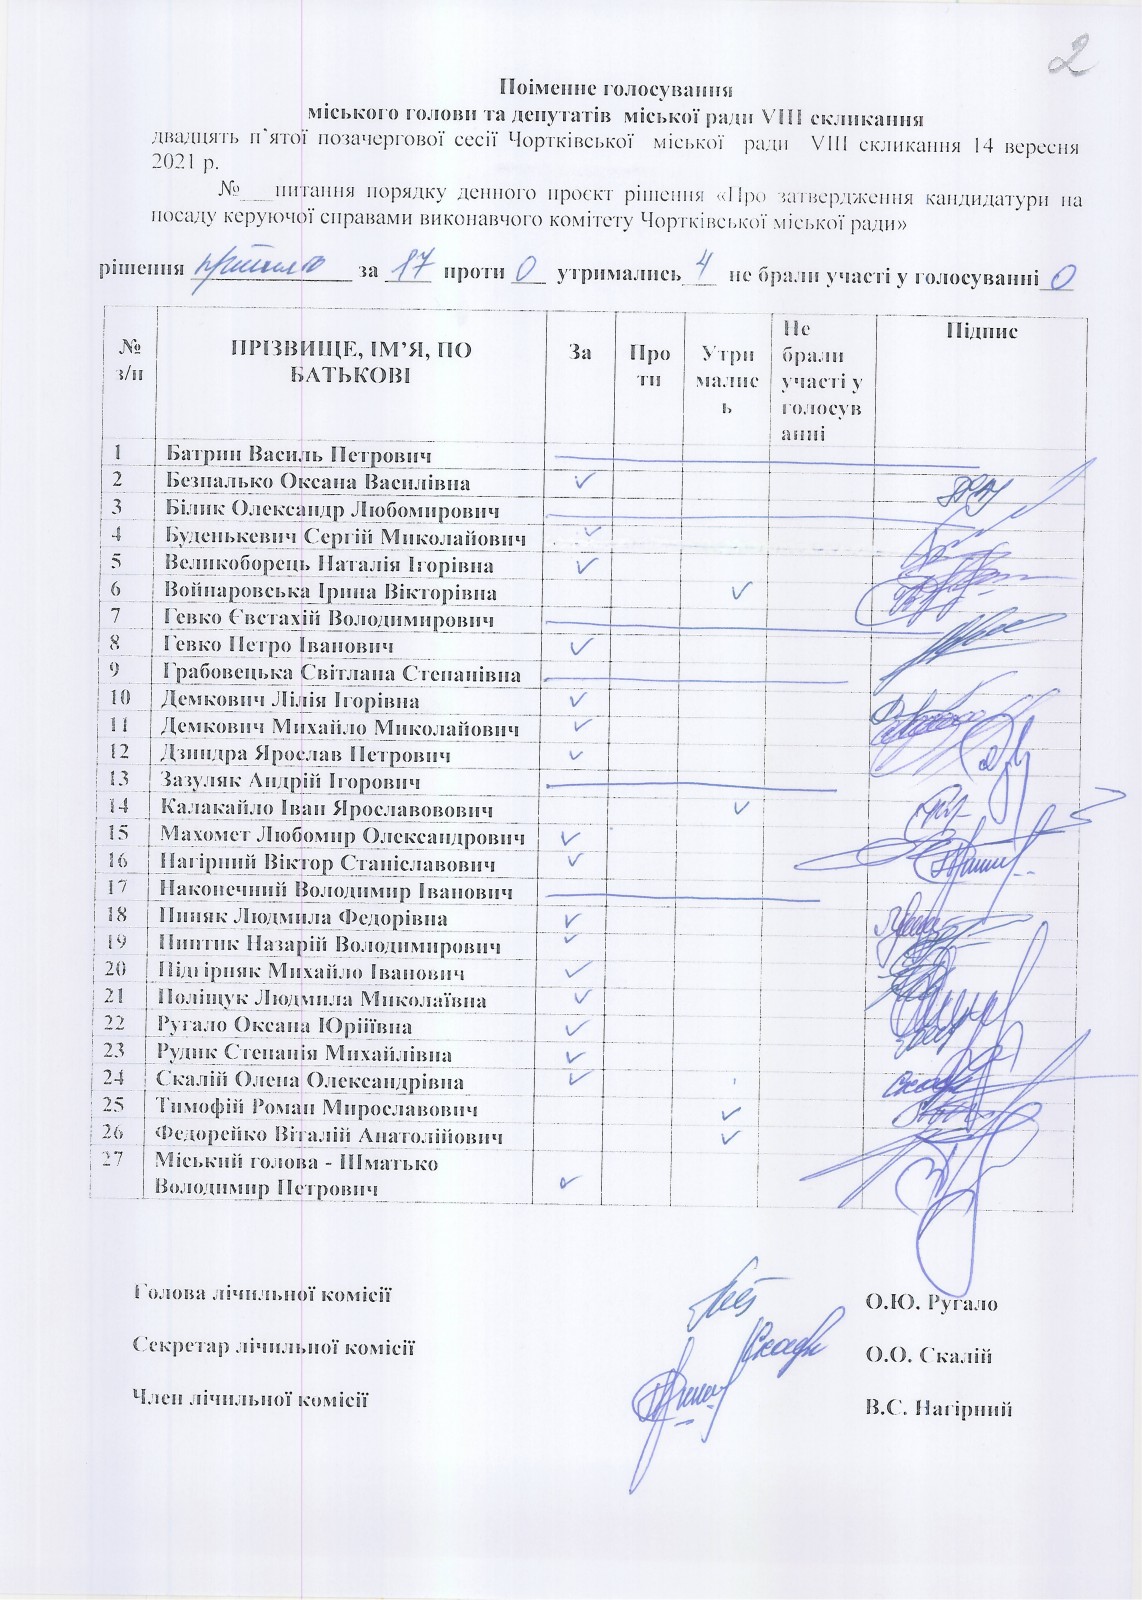 2
Поіменне голосування
міського голови та депутатів міської ради VIII скликання
двадцять п`ятої позачергової сесії Чортківської міської ради VIII скликання 14 вересня
2021 р.
№___питання порядку денного проєкт рішення «Про затвердження кандидатури на
посаду керуючої справами виконавчого комітету Чортківської міської ради»
рішення прийнято за 17 проти 0 утримались 4 не брали участі у голосуванні 0
№ з/п ПРІЗВИЩЕ, ІМ’Я, ПО БАТЬКОВІ За Про ти Утри малис ь Не брали участі у голосув анні Підпис
1 Батрин Василь Петрович
2 Безпалько Оксана Василівна
3 Білик Олександр Любомирович
4 Буденькевич Сергій Миколайович
5 Великоборець Наталія Ігорівна
6 Войнаровська Ірина Вікторівна
7 Гевко Євстахій Володимирович
8 Гевко Петро Іванович
9 Грабовецька Світлана Степанівна
10 Демкович Лілія Ігорівна
11 Демкович Михайло Миколайович
12 Дзиндра Ярослав Петрович
13 Зазуляк Андрій Ігорович
14 Калакайло Іван Ярославовович
15 Махомет Любомир Олександрович
16 Нагірний Віктор Станіславович
17 Наконечний Володимир Іванович
18 Пиняк Людмила Федорівна
19 Пинтик Назарій Володимирович
20 Підгірняк Михайло Іванович
21 Поліщук Людмила Миколаївна
22 Ругало Оксана Юріїївна
23 Рудик Степанія Михайлівна
24 Скалій Олена Олександрівна
25 Тимофій Роман Мирославович
26 Федорейко Віталій Анатолійович
27 Міський голова - Шматько
Володимир Петрович
Голова лічильної комісії О.Ю. Ругало
Секретар лічильної комісії О.О. Скалій
Член лічильної комісії В.С. Нагірний